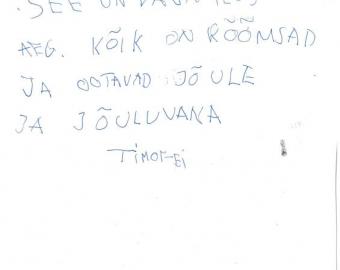 . SEE ON VÄGA ILUS
AEG. KÕIK ON RÕÕMSAD
JA OOTAVAD JÕULE
JA JÕULUVANA
TIMOFEI